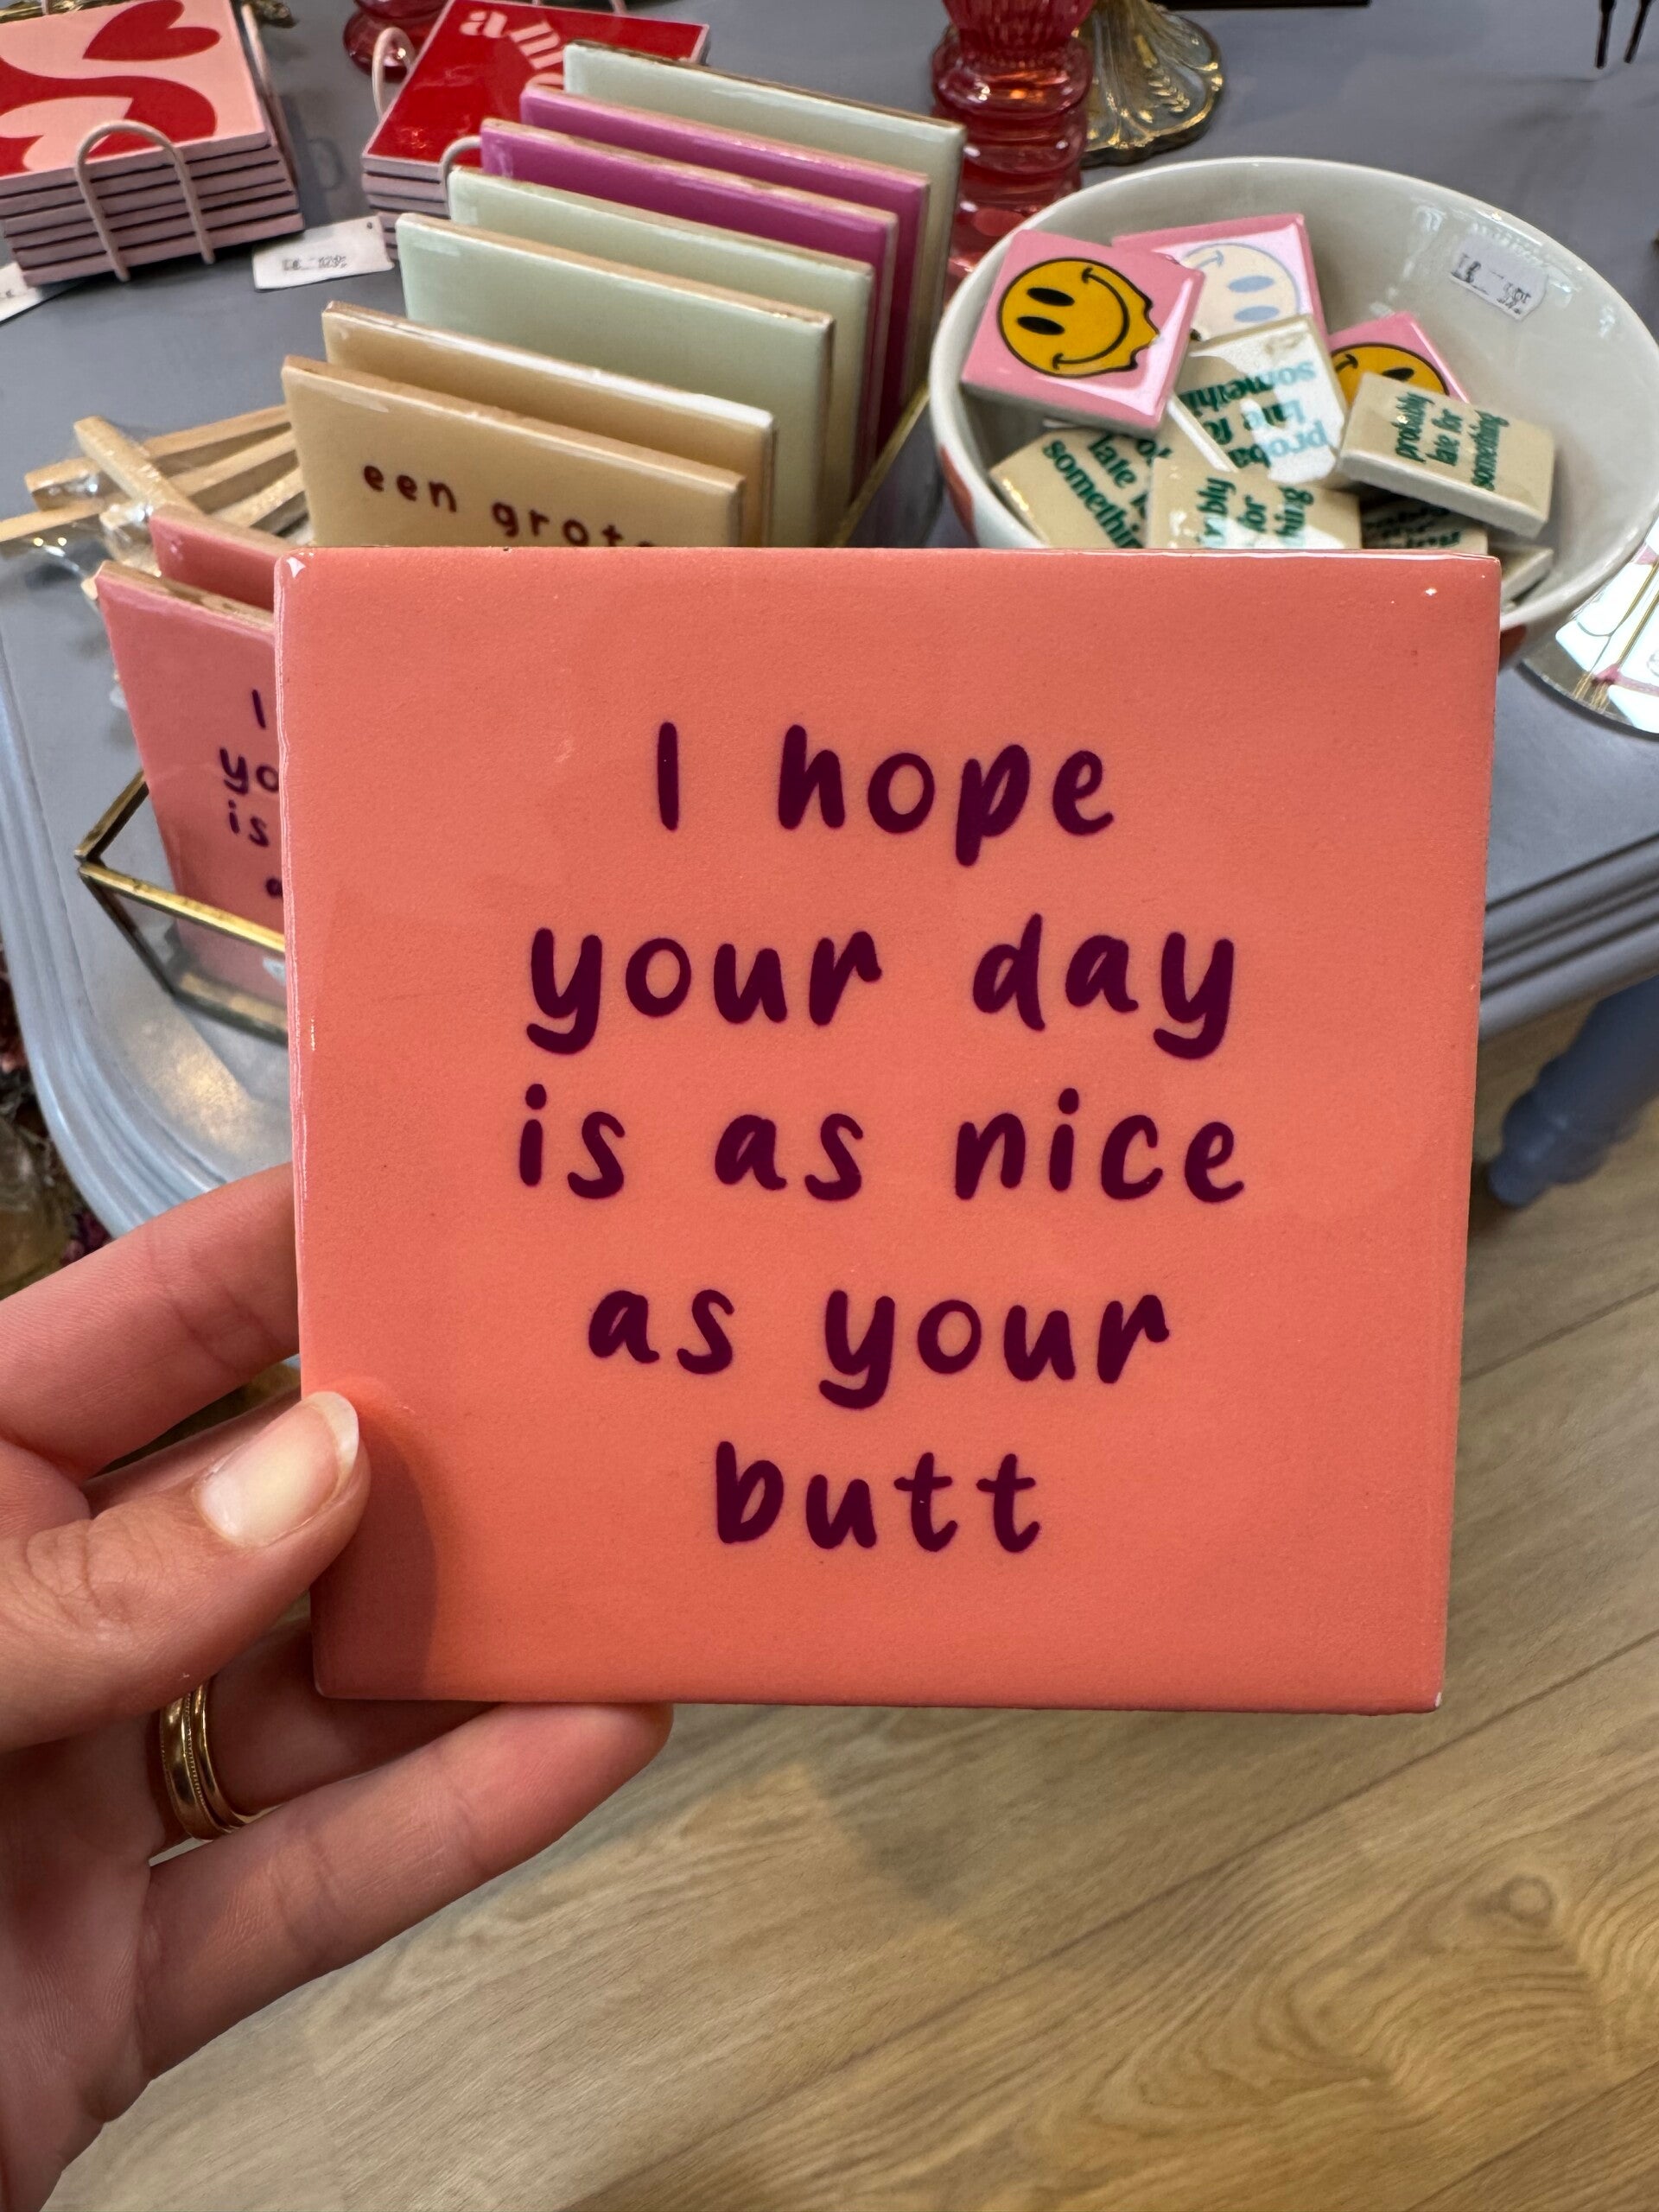 am
een grote
I
yo
is
a
probably
late for
something
late
something
I hope
your day
is as nice
as your
butt